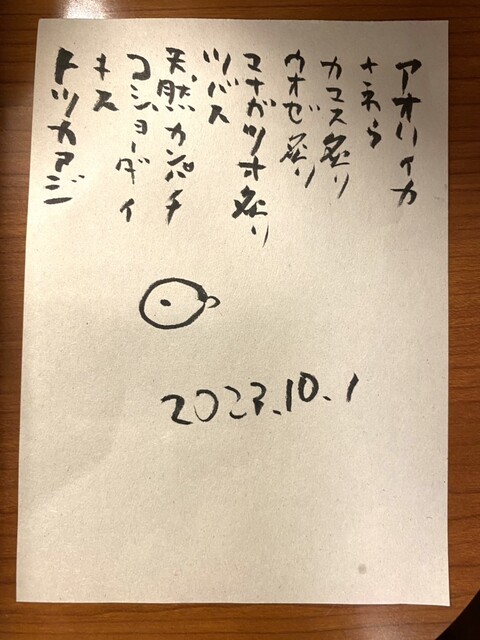 アオリイカ
さわら
カマス炙り
ウオゼ炙り
マナガツオ炙り
ツバス
天然カンパチ
コショーダイ
キス
トツカアジ
2023.10.1